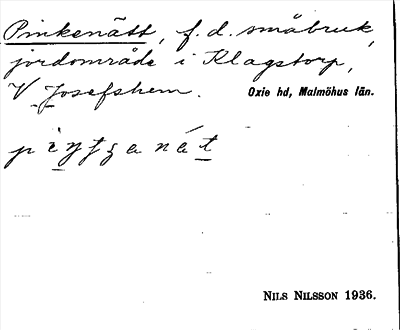 Pinkenätt, f. d. småbruk,
jordområde i Klagstorp,
V Josefshem. Oxie hd, Malmöhus län.
NILS NILSSON 1936.